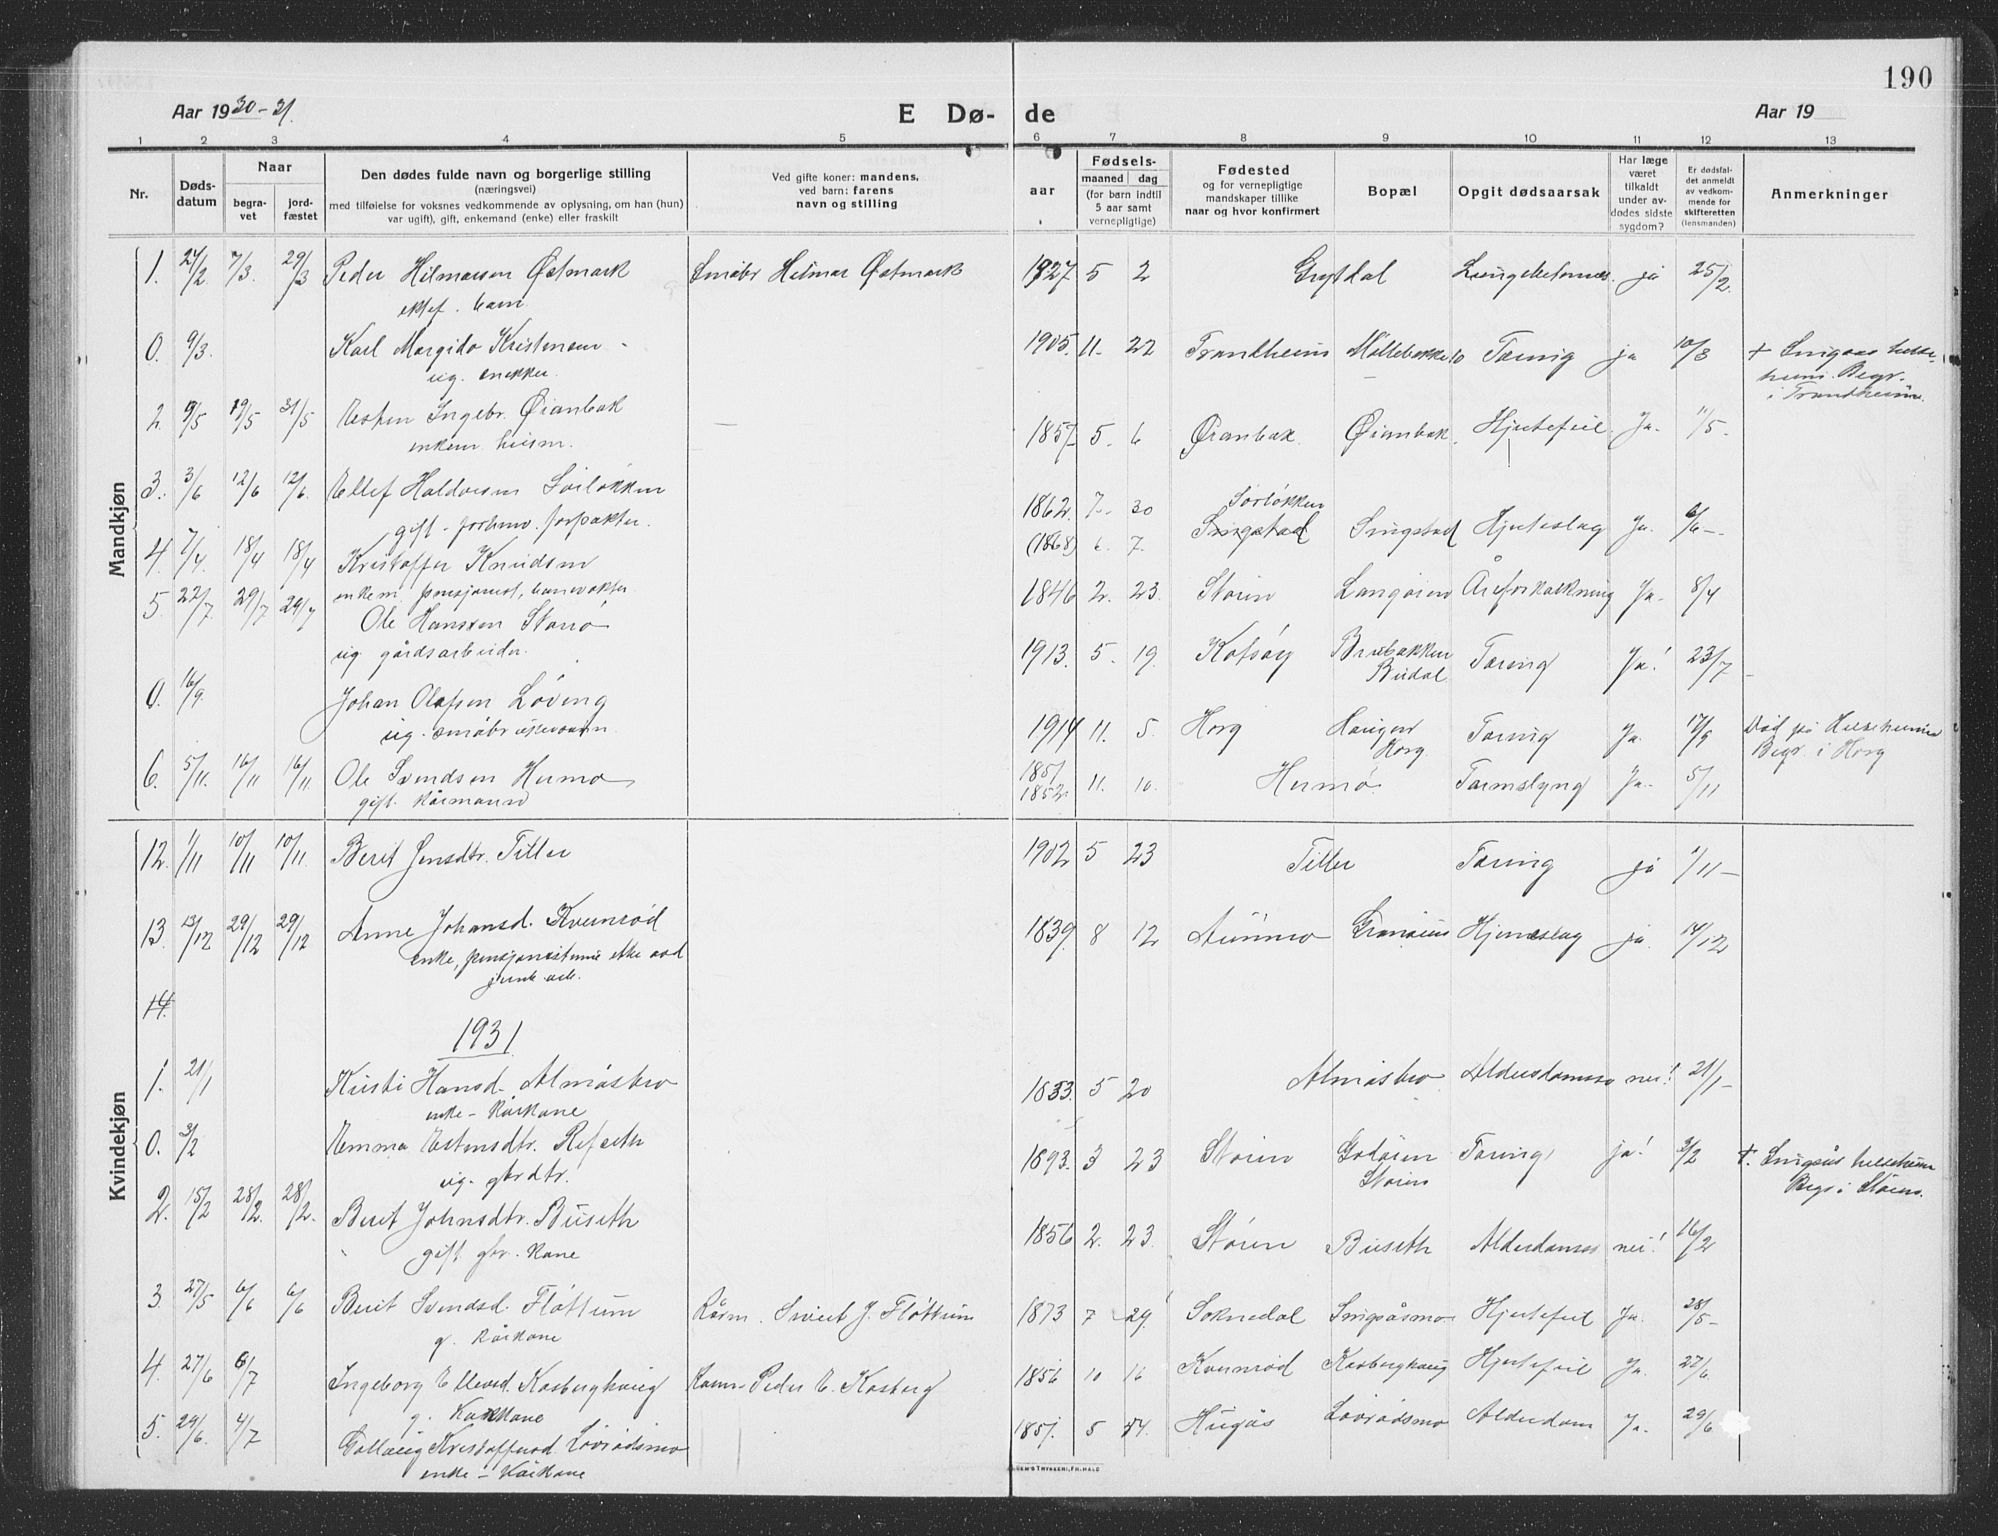 190
Aar 1930-31.
E Dø- de
Aar 19
1 2 3 4 5 6 7 8 9 10 11 12 13
Nr.
Døds-
datum
Naar
begra-
vet
jord-
fæstet
Den dødes fulde navn og borgerlige stilling
(næringsvei)
med tilføielse for voksnes vedkommende av oplysning, om han (hun)
var ugift), gift, enkemand (enke) eller fraskilt
Ved gifte koner: mandens,
ved barn: farens
navn og stilling
aar
Fødsels-
maaned dag
(for barn indtil
5 aar samt
vernepligtige)
Fødested
og for vernepligtige
mandskaper tillike
naar og hvor konfirmert
Bopæl
Opgit dødsaarsak
Har læge
været
tilkaldt
under av-
dødes sidste
sygdom?
Er dødsfal-
det anmeldt
av vedkom-
mende for
skifteretten
(lensmanden)
Anmerkninger
Mandkjøn
1. 24/2 7/3. 29/3 Peder Hilmarsen Østmark Småbr Hilmar Østmark 1927 5 2 ja 25/2.
ektef. barn.
0. 9/3. Karl Margido Kristensen 1905. 11. 22 Trondheim Møllebakke 10 Tæring ja 10/3 + Singsås helse-
ug. snekker heim. Begr.
i Trondheim.
2. 9/5 19/5 31/5 Esten Ingebr. Øianbak — 1857 5. 6 Øianbak. Øianbak. Hjertefeil. Ja. 11/5.
enkem. husm.
3. 3/6 12/6 12/6. Ellef Haldorsen Sørløkken 1862. 7. 30 Sørløkken
gift. forhenv. forpakter. (1868) 6. 7. Singstad Singstad Hjerteslag Ja. 6/6 —
4. 7/4. 18/4 18/4 Kristoffer Knudsen
enkem. pensjonist, banevokter. 1846 2. 23. Støren Langøien Åreforkalkning Ja. 8/4
5. 22/7. 29/7 29/7 Ole Hanssen Storrø
ug gårdsarbeider. 1913. 5. 19. Kotsøy Brubakken Tæring Ja! 23/7
Budal.
0. 16/9. Johan Olafsen Løving
ug. småbrukersønn. 1914 11. 5. Horg Haugen Tæring Ja. 17/9 Død på Helseheimen
Horg Begr. i Horg
6. 5/11. 16/11 16/11. Ole Svendsen Hermo 1851 1852 11. 10. Hermo. Tarmslyng Ja. 5/11
gift. kårmann
Kvindekjøn
12. 1/11 10/11 10/11. Berit Jensdtr. Tiller 1902 5 23 Tiller Tæring ja 1/11 —
13. 13/12 29/12 29/12 Anne Johansd. Kvernrød 1839. 8 12 Aunmo Granøien Hjerteslag ja. 14/12
enke, pensjonistinne etter
14.
1931
1. 21/1 Kirsti Hansd. Almåsbro 1833. 5 20 Almåsbro Alderdomssv nei! 21/1 -
enke - kårkone
0. 3/2 Emma Estensdtr. Refseth 1893. 3 23 Støren Godøien Tæring ja! 3/2 +. Singsås helseheim
ug. gbrdtr. Støren Begr i Støren.
2. 15/2 28/2. 28/2. Berit Johnsdtr. Buseth 1856 2. 23. Støren Buseth Alderdomssv nei! 16/2
gift gbr. kone
3. 27/5 6/6 6/6 Berit Svendsd. Fløttum Kårm. Sivert J. Fløttum 1873 7 29. Soknedal Singsåsmo Hjertefeil Ja. 28/5 -
g. kårkone
4. 27/6 6/7 Ingeborg Ellevsd. Kosberghaug Kårm. Peder E. Kosberg 1856 10 16 Kvernrød Kosberghaug Hjertefeil Ja. 27/6.
g. Kårkone
5. 29/6. 4/7 Gollaug Kristoffersd. Løvrødsmo 1851. 5 14. Hugås Løvrødsmo Alderdom Ja. 29/6
enke - kårkone